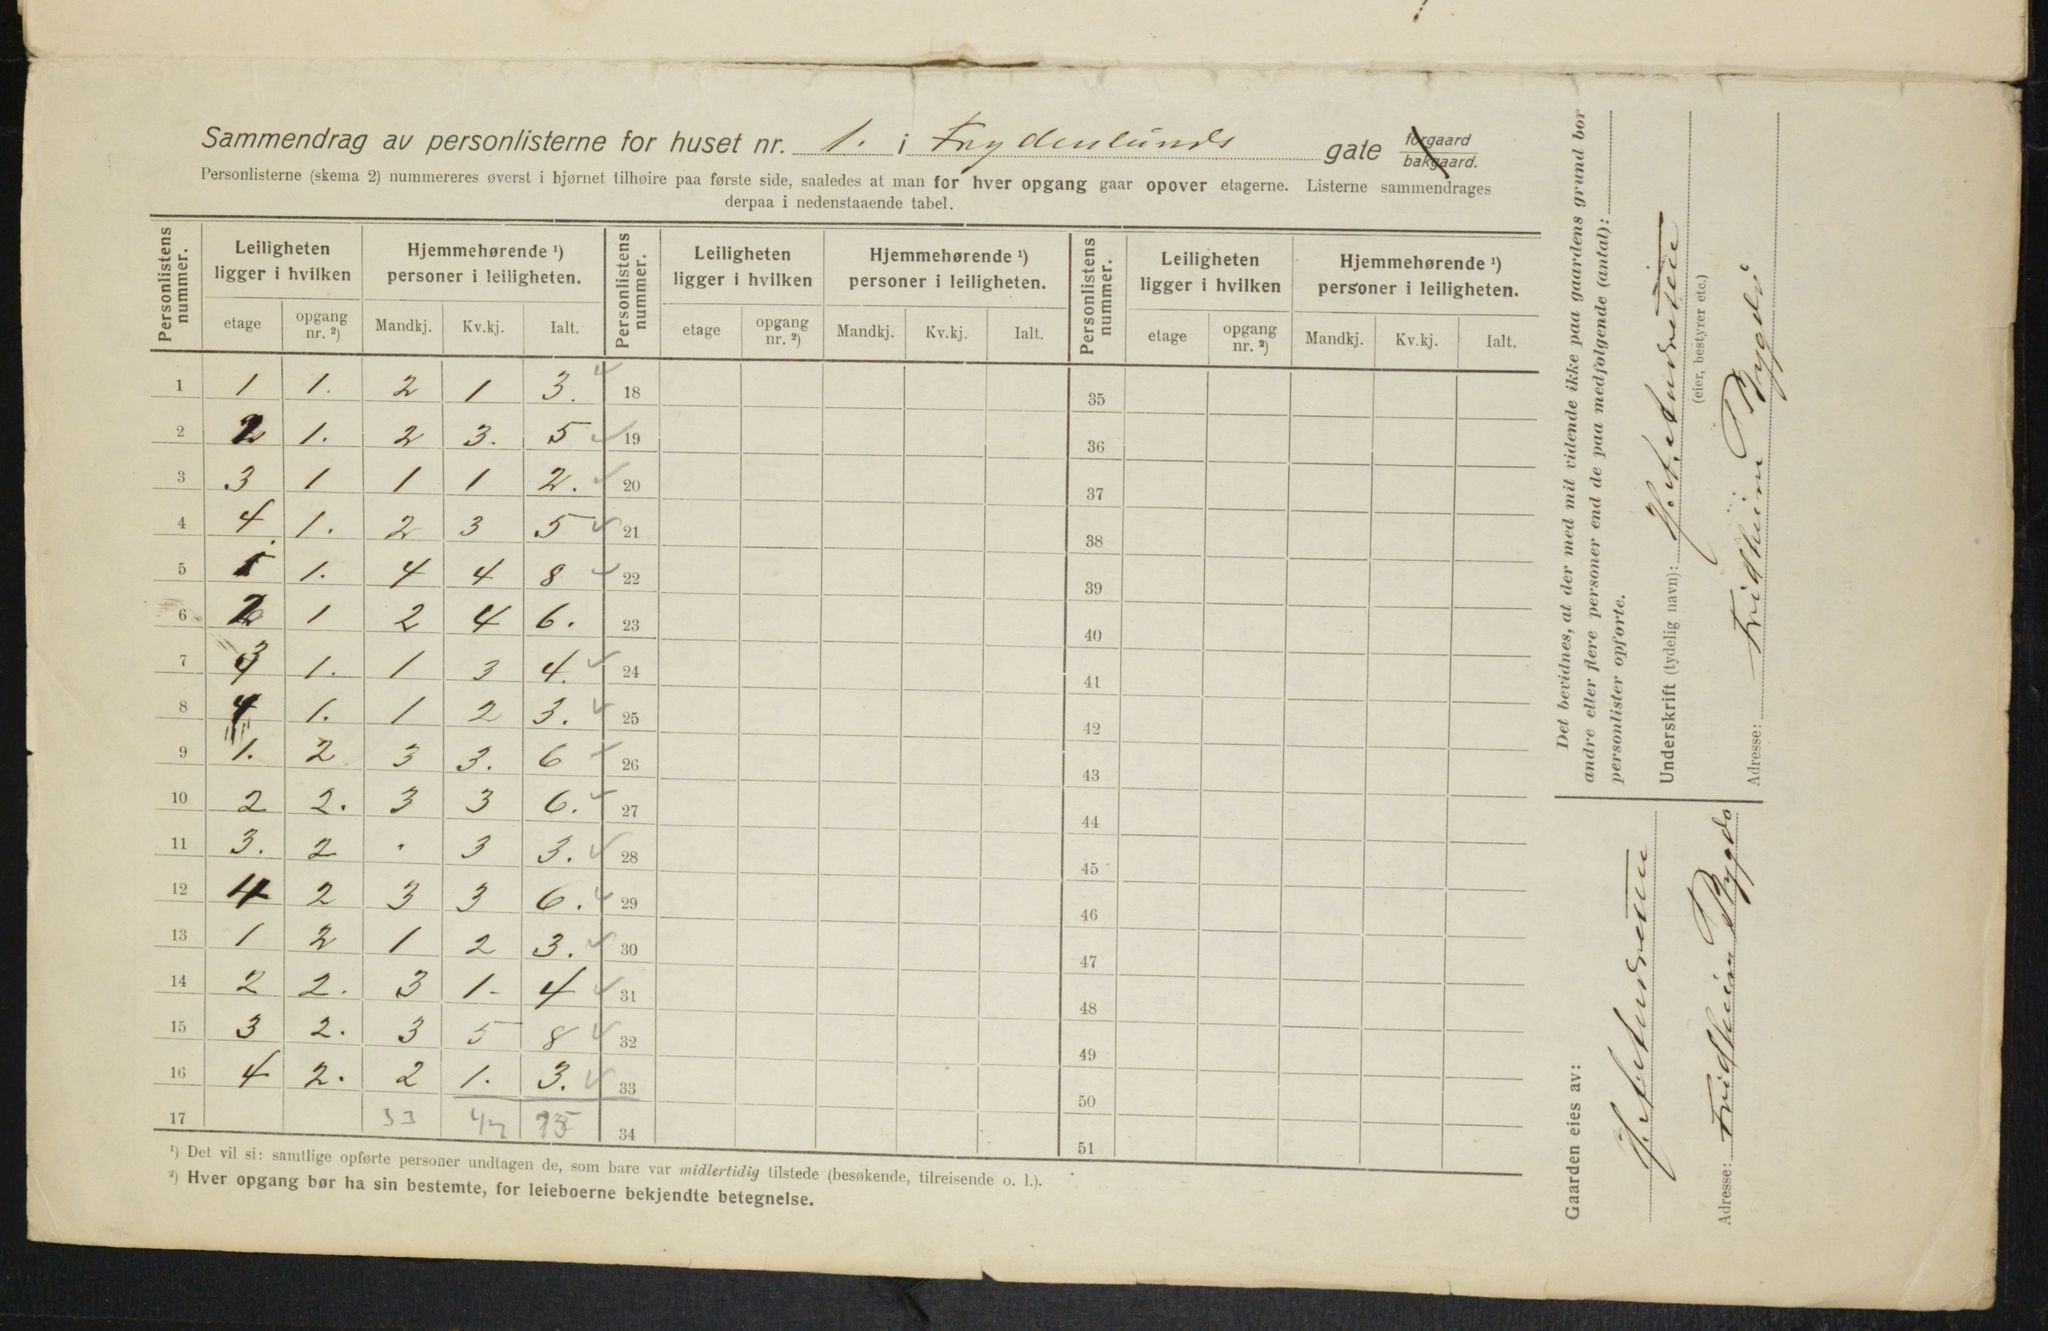 Sammendrag av personlisterne for huset nr. 1. i Frydenlunds gate forgaard bakgaard.
Personlisterne (skema 2) nummereres øverst i hjørnet tilhøire paa første side, saaledes at man for hver opgang gaar opover etagerne. Listerne sammendrages
derpaa i nedenstaaende tabel.
Personlistens nummer. Leiligheten ligger i hvilken Hjemmehørende ¹) personer i leiligheten. Personlistens nummer. Leiligheten ligger i hvilken Hjemmehørende ¹) personer i leiligheten. Personlistens nummer. Leiligheten ligger i hvilken Hjemmehørende ¹) personer i leiligheten.
etage opgang nr. ²) Mandkj. Kv.kj. Ialt. etage opgang nr. ²) Mandkj. Kv.kj. Ialt. etage opgang nr. ²) Mandkj. Kv.kj. Ialt.
1 1 1. 2 1 3. 18 35
2 2 1. 2 3. 5 19 36
3 3 1 1 1 2. 20 37
4 4 1. 2 3 5 21 38
5 1 1. 4 4 8 22 39
6 2 1 2 4 6. 23 40
7 3 1. 1 3 4. 24 41
8 4 1. 1 2 3. 25 42
9 1. 2 3 3. 6 26 43
10 2 2. 3 3 6. 27 44
11 3. 2 . 3 3. 28 45
12 4 2 3 3 6. 29 46
13 1 2 1 2 3. 30 47
14 2 2. 3 1. 4 31 48
15 3 2. 3 5 8 32 49
16 4 2. 2 1. 3. 33 50
17 33 42 75 34 51
¹) Det vil si: samtlige opførte personer undtagen de, som bare var midlertidig tilstede (besøkende, tilreisende o. l.).
²) Hver opgang bør ha sin bestemte, for leieboerne bekjendte betegnelse.
Det bevidnes, at der med mit vidende ikke paa gaardens grund bor
andre eller flere personer end de paa medfølgende (antal):
personlister opførte.
Underskrift (tydelig navn): Andresen
(eier, bestyrer etc.)
Adresse: Fridheim Bygdø
Gaarden eies av:
Andresen
Adresse: Fridheim Bygdø